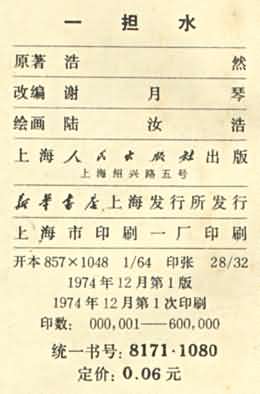 一担水
原著 浩然
改编 谢月琴
绘画 陆汝浩
上海人民出版社出版
上海绍兴路五号
新华书店上海发行所发行
上海市印刷一厂印刷
开本 857×1048 1/64 印张 28/32
1974年12月第1版
1974年12月第1次印刷
印数: 000,001——600,000
统一书号: 8171·1080
定价: 0.06 元